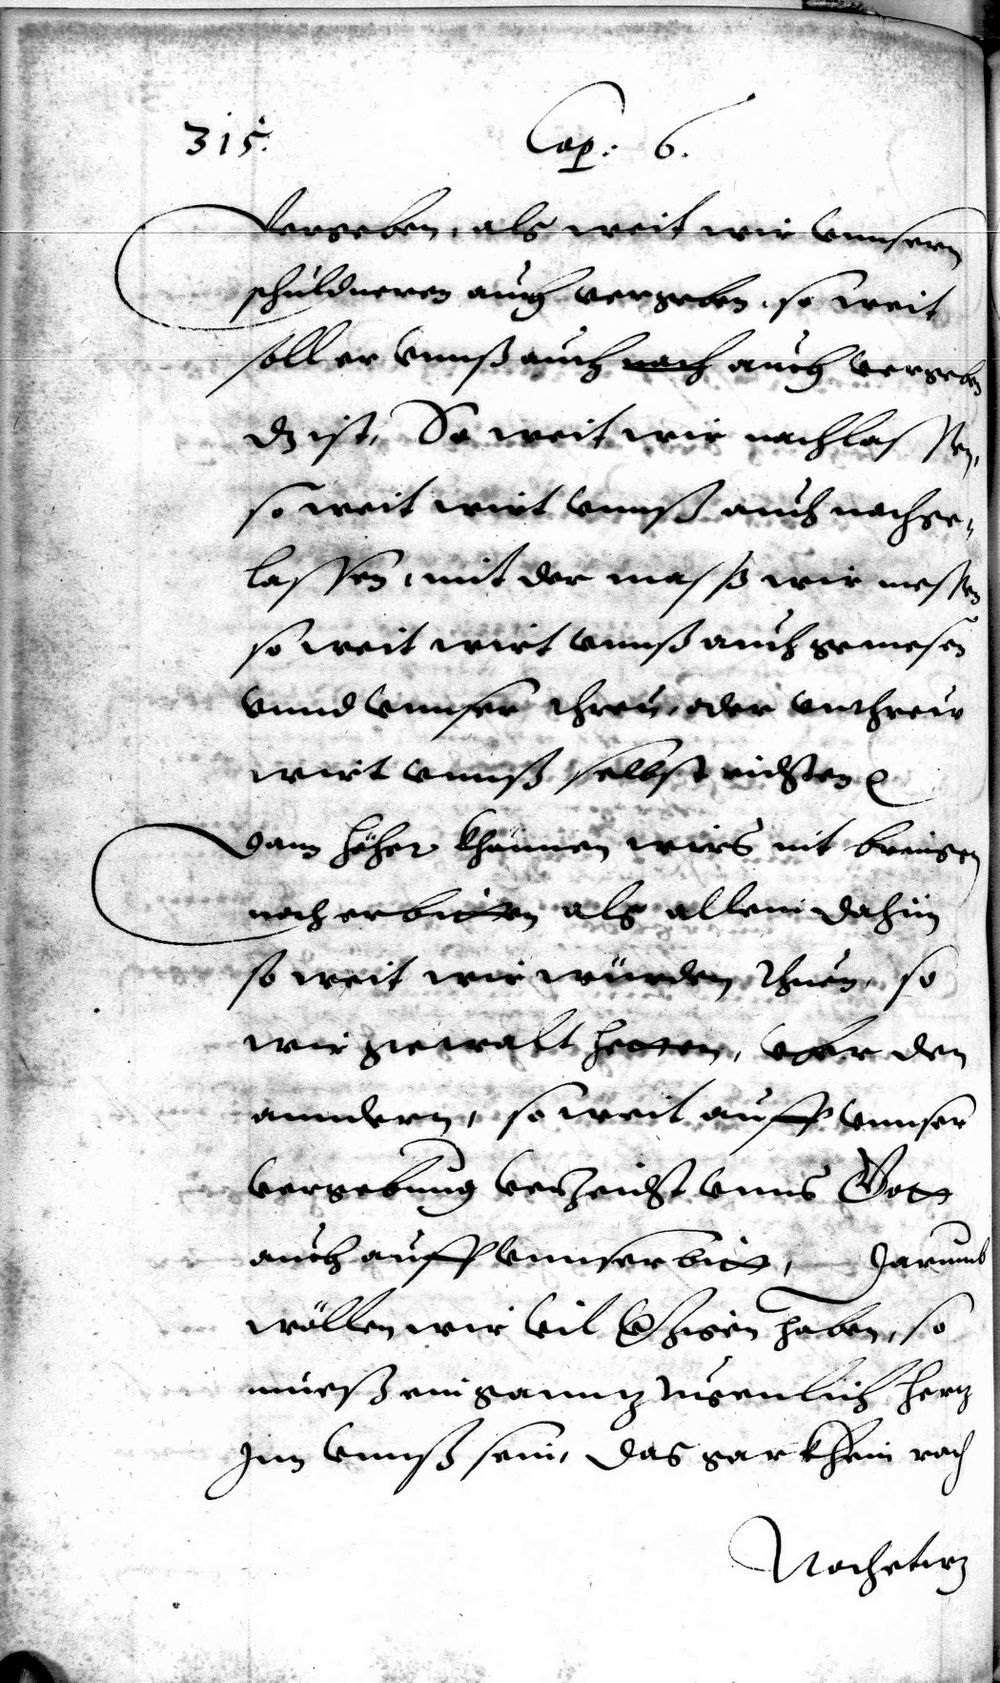 315. Cap: 6.
Vergeben, als weit wir vnnsern
schuldneren auch vergeben, so weit
soll er vnnß auch nach auch vergeben
dz ist, So weit wir nachlassen,
so weit wirt vnnß auch nachge-
lassen, mit der mass wir messen
so weit wirt vnnß auch gemesen
vnnd vnnser threu, oder vnthreuw
wirt vnnß selbst richten
Dann höher khönnen wirs nit bringen
noch erbitten als allein dahin
so weit wir würden thuen, so
wir gewalt hetten, vber den
anndern, so weit auff vnnser
vergebung verzeicht vnns Gott
auch auff vnnser bitt, Darumb
wöllen wir vil haben, so
mueß ein ganntz hertz
Inn vnnß sein, das gar khein rach
Noch etwz